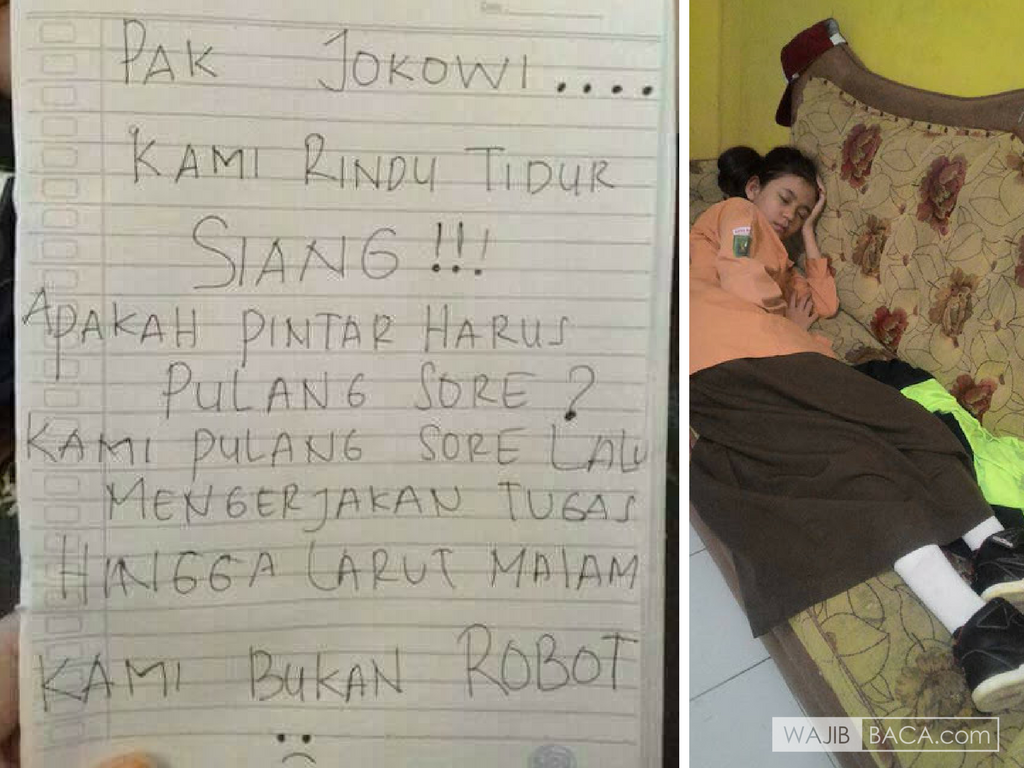 PAK JOKOWI....
KAMI RINDU TIDUR
SIANG!!!
APAKAH PINTAR HARUS
PULANG SORE?
KAMI PULANG SORE LALU
MENGERJAKAN TUGAS
HINGGA LARUT MALAM
KAMI BUKAN ROBOT
:(
WAJIB BACA.com